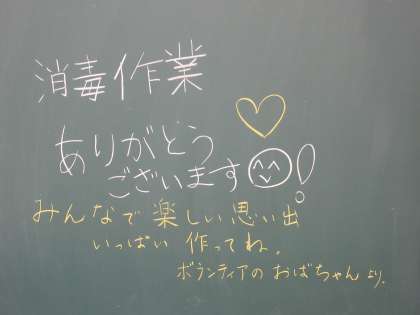 消毒作業
ありがとう
ございます!
みんなで楽しい思い出
いっぱい作ってね。
ボランティアのおばちゃんより。